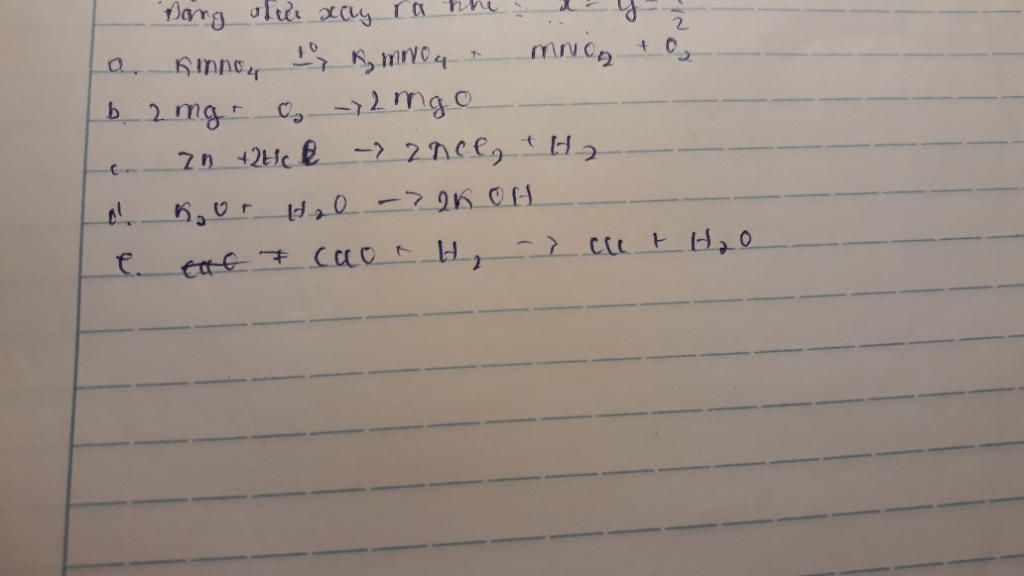 Dấu bằng xảy ra khi: x = y = 1/2
a. KMnO4 t° → K2MnO4 + MnO2 + O2
b. 2Mg + O2 → 2MgO
c. Zn + 2HCl → ZnCl2 + H2
d. K2O + H2O → 2KOH
e. CuO + H2 → Cu + H2O